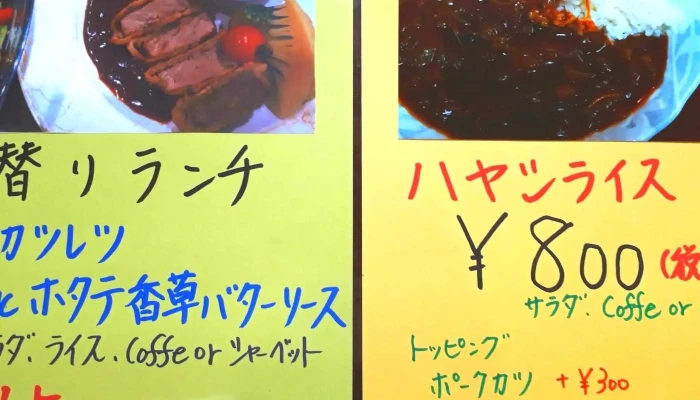 替りランチ
カツレツ
とホタテ香草バターソース
ラダ、ライス、Coffe or シャーベット
ハヤシライス
¥800(税
サラダ、Coffe or
トッピング
ポークカツ +¥300